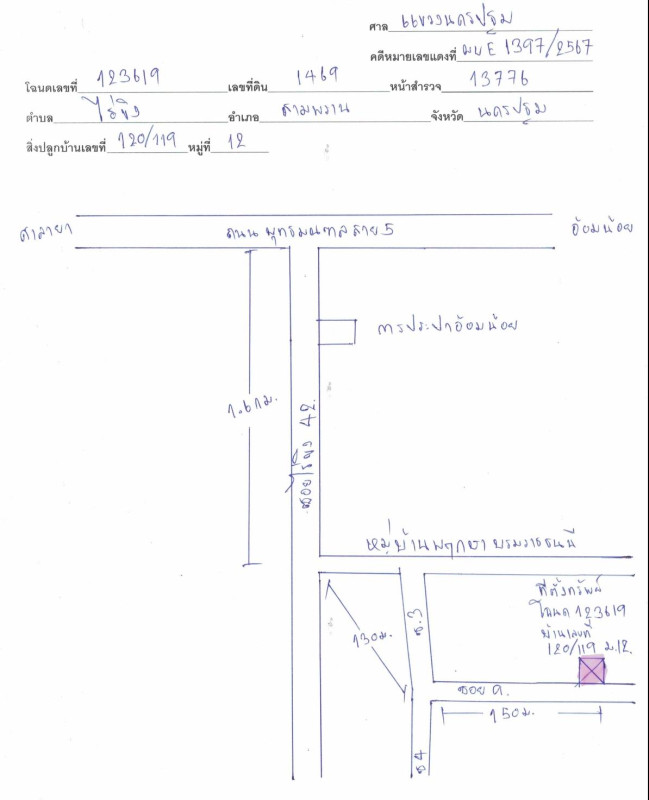 ศาล แขวงนครปฐม
คดีหมายเลขแดงที่ ผบE 1397/2567
โฉนดเลขที่ 123619 เลขที่ดิน 1469 หน้าสำรวจ 13776
ตำบล ไร่ขิง อำเภอ สามพราน จังหวัด นครปฐม
สิ่งปลูกบ้านเลขที่ 120/119 หมู่ที่ 12
ศาลายา ถนน พุทธมณฑลสาย 5 อ้อมน้อย
การประปาอ้อมน้อย
1.6 กม.
ซอยไร่ขิง 42
หมู่บ้านพฤกษา บรมราชชนนี
ที่ตั้งทรัพย์
โฉนด 123619
บ้านเลขที่
120/119 ม.12.
ซ.3
130 ม.
ซอย ค.
150 ม.
ซ 4